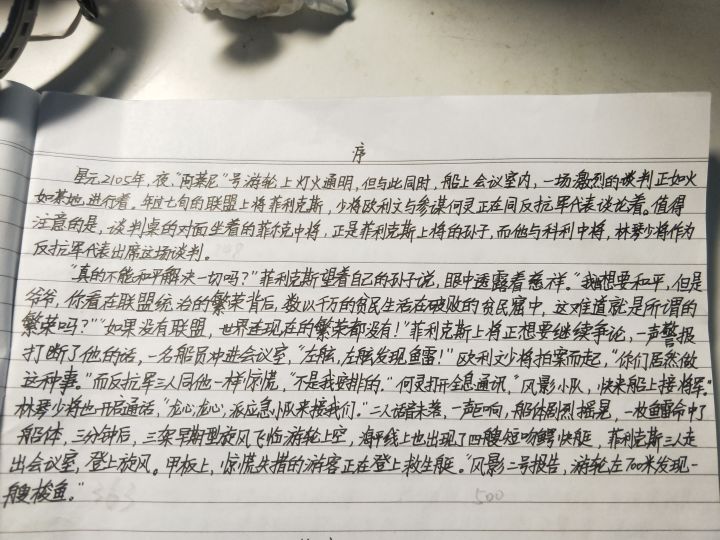 序
星元2105年,夜,"两莱尼"号游轮上灯火通明,但与此同时,船上会议室内,一场激烈的谈判正如火
如荼地进行着。年过七旬的联盟上将菲利克斯,少将欧利文与参谋何灵正在同反抗军代表谈论着。值得
注意的是,谈判桌的对面坐着的菲尔克中将,正是菲利克斯上将的孙子,而他与科利中将,林琴少将作为
反抗军代表出席这场谈判。
"真的不能和平解决一切吗?"菲利克斯望着自己的孙子说,眼中透露着慈祥。"我想要和平,但是
爷爷,你看在联盟统治的繁荣背后,数以千万的贫民生活在破败的贫民窟中,这难道就是所谓的
繁荣吗?""如果没有联盟,世界连现在的繁荣都没有!"菲利克斯上将正想要继续争论,一声警报
打断了他的话,一名船员冲进会议室,"左舷,左舷发现鱼雷!"欧利文少将拍案而起,"你们居然做
这种事。"而反抗军三人同他一样惊慌,"不是我安排的。"何灵打开全息通讯,"风影小队,快来船上接将军。"
林琴少将也开启通话,"龙心,龙心,派应急小队来接我们。"二人话音未落,一声巨响,船体剧烈摇晃,一枚鱼雷命中了
船体,三分钟后,三架早期型旋风飞临游轮上空,海平线上也出现了四艘短吻鳄快艇,菲利克斯三人走
出会议室,登上旋风。甲板上,惊慌失措的游客正在登上救生艇。"风影二号报告,游轮左700米发现一
艘梭鱼。"
500